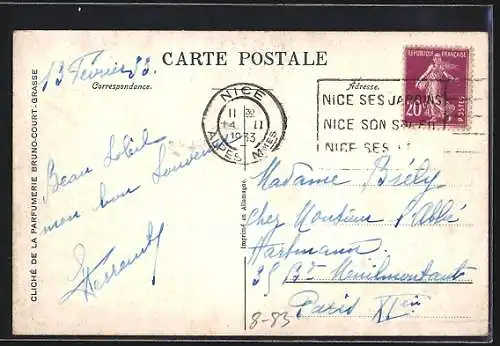 CARTE POSTALE
13 Février 33.
Correspondance.
Adresse.
RÉPUBLIQUE FRANÇAISE
20
POSTES
NICE
11
14 II
1933
ALPES Mmes
NICE SES JARDINS
NICE SON SOLEIL
NICE SES
Beau Soleil
mon bon Souvenir
Madame Biély
chez Monsieur l'Abbé
Hartmann
35 Bd Ménilmontant
Paris XIem
8-83
CLICHÉ DE LA PARFUMERIE BRUNO-COURT-GRASSE
Imprimé en Allemagne.